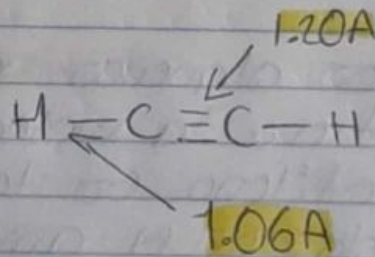 1.20A
H — C ≡ C — H
1.06A